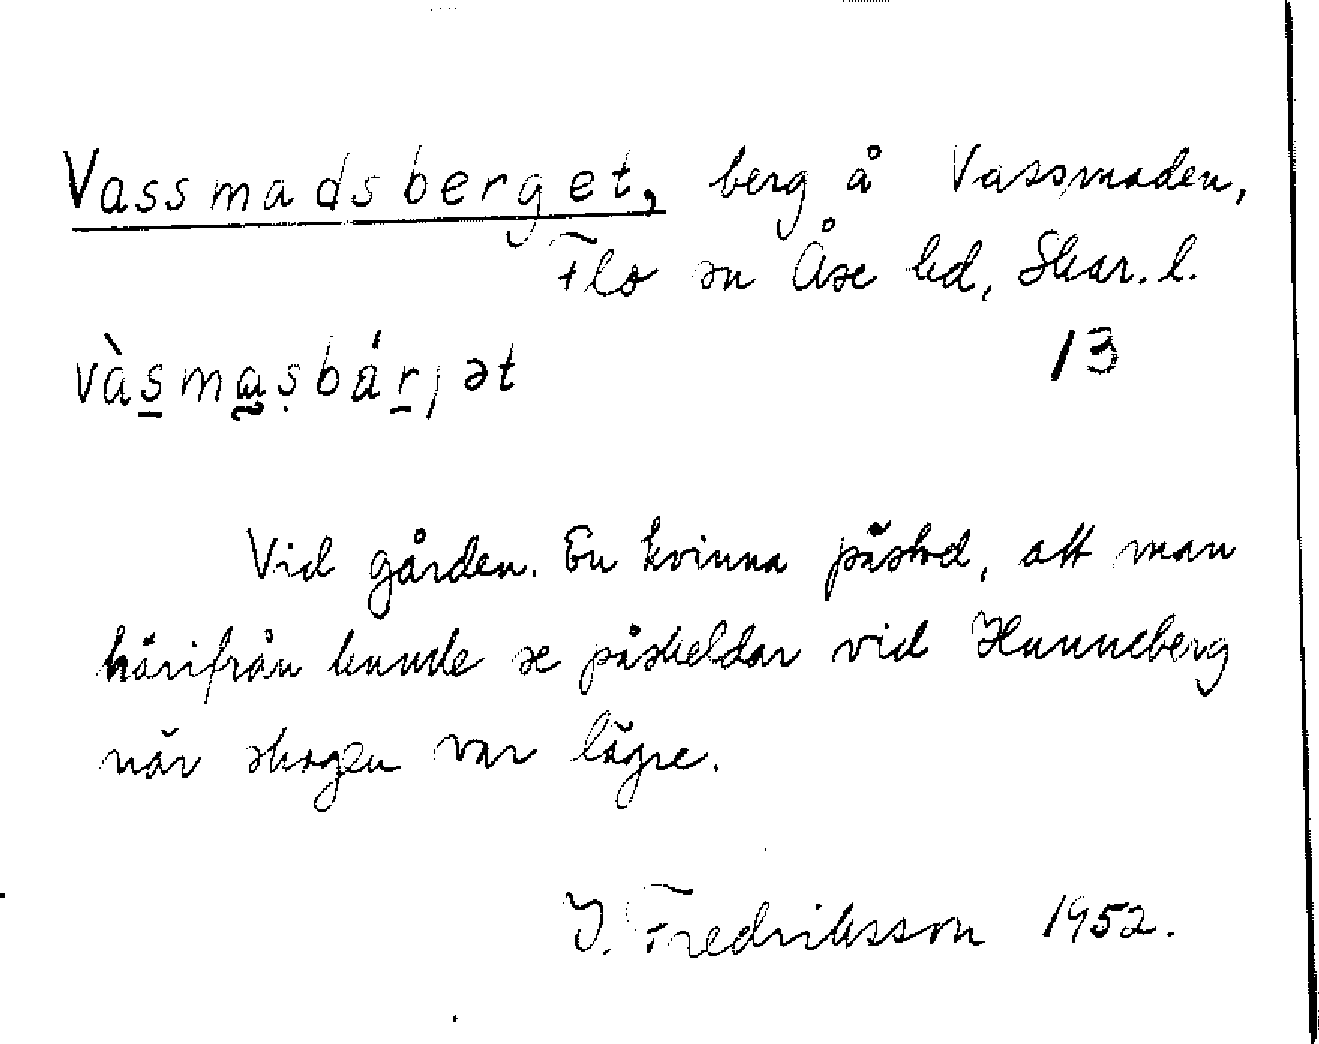 Vassmadsberget, berg å Vassmaden,
Flo sn Åse hd, Skar. l.
vàs̲ma̰ṣbár̲jət 13
Vid gården. En kvinna påstod, att man
härifrån kunde se påskeldar vid Hunneberg
när skogen var lägre.
I. Fredriksson 1952.